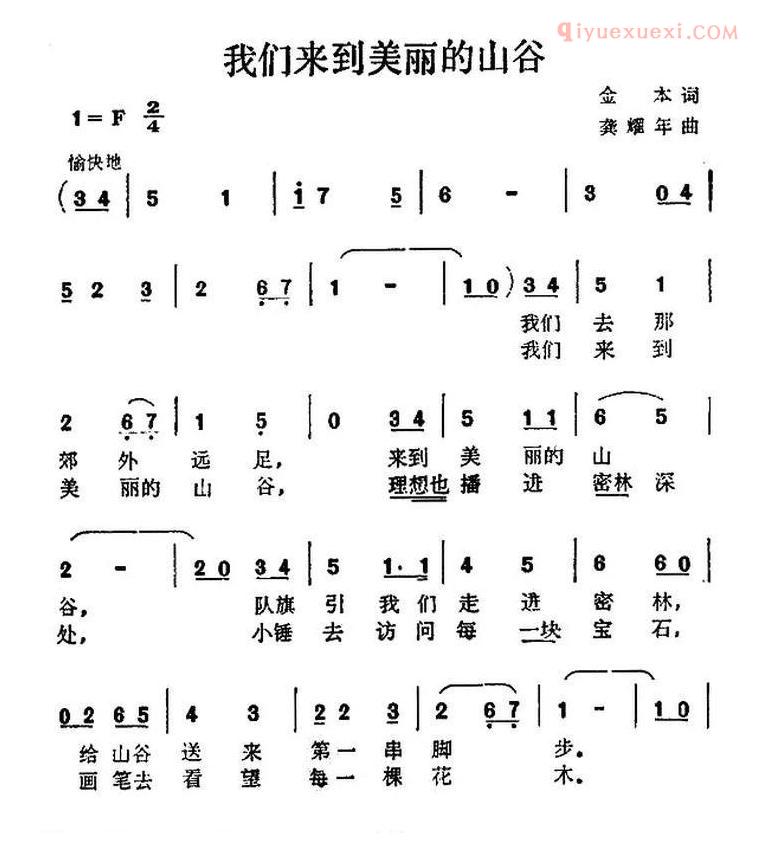 qiyuexuexi.com
我们来到美丽的山谷
金 本 词
1 = F 2/4
龚 耀 年 曲
愉快地
( 3 4 | 5 1 | 1 7 5 | 6 - | 3 0 4 |
5 2 3 | 2 6 7 | 1 - | 1 0 ) 3 4 | 5 1 |
我们 去 那
我们 来 到
2 6 7 | 1 5 | 0 3 4 | 5 1 1 | 6 5 |
郊 外 远 足, 来到 美 丽的 山
美 丽的 山 谷, 理想也 播 进 密林 深
2 - | 2 0 3 4 | 5 1· 1 | 4 5 | 6 6 0 |
谷, 队旗 引 我 们 走 进 密 林,
处, 小锤 去 访 问 每 一块 宝 石,
0 2 6 5 | 4 3 | 2 2 3 | 2 6 7 | 1 - | 1 0
给 山谷 送 来 第 一 串 脚 步.
画 笔去 看 望 每 一 棵 花 木.